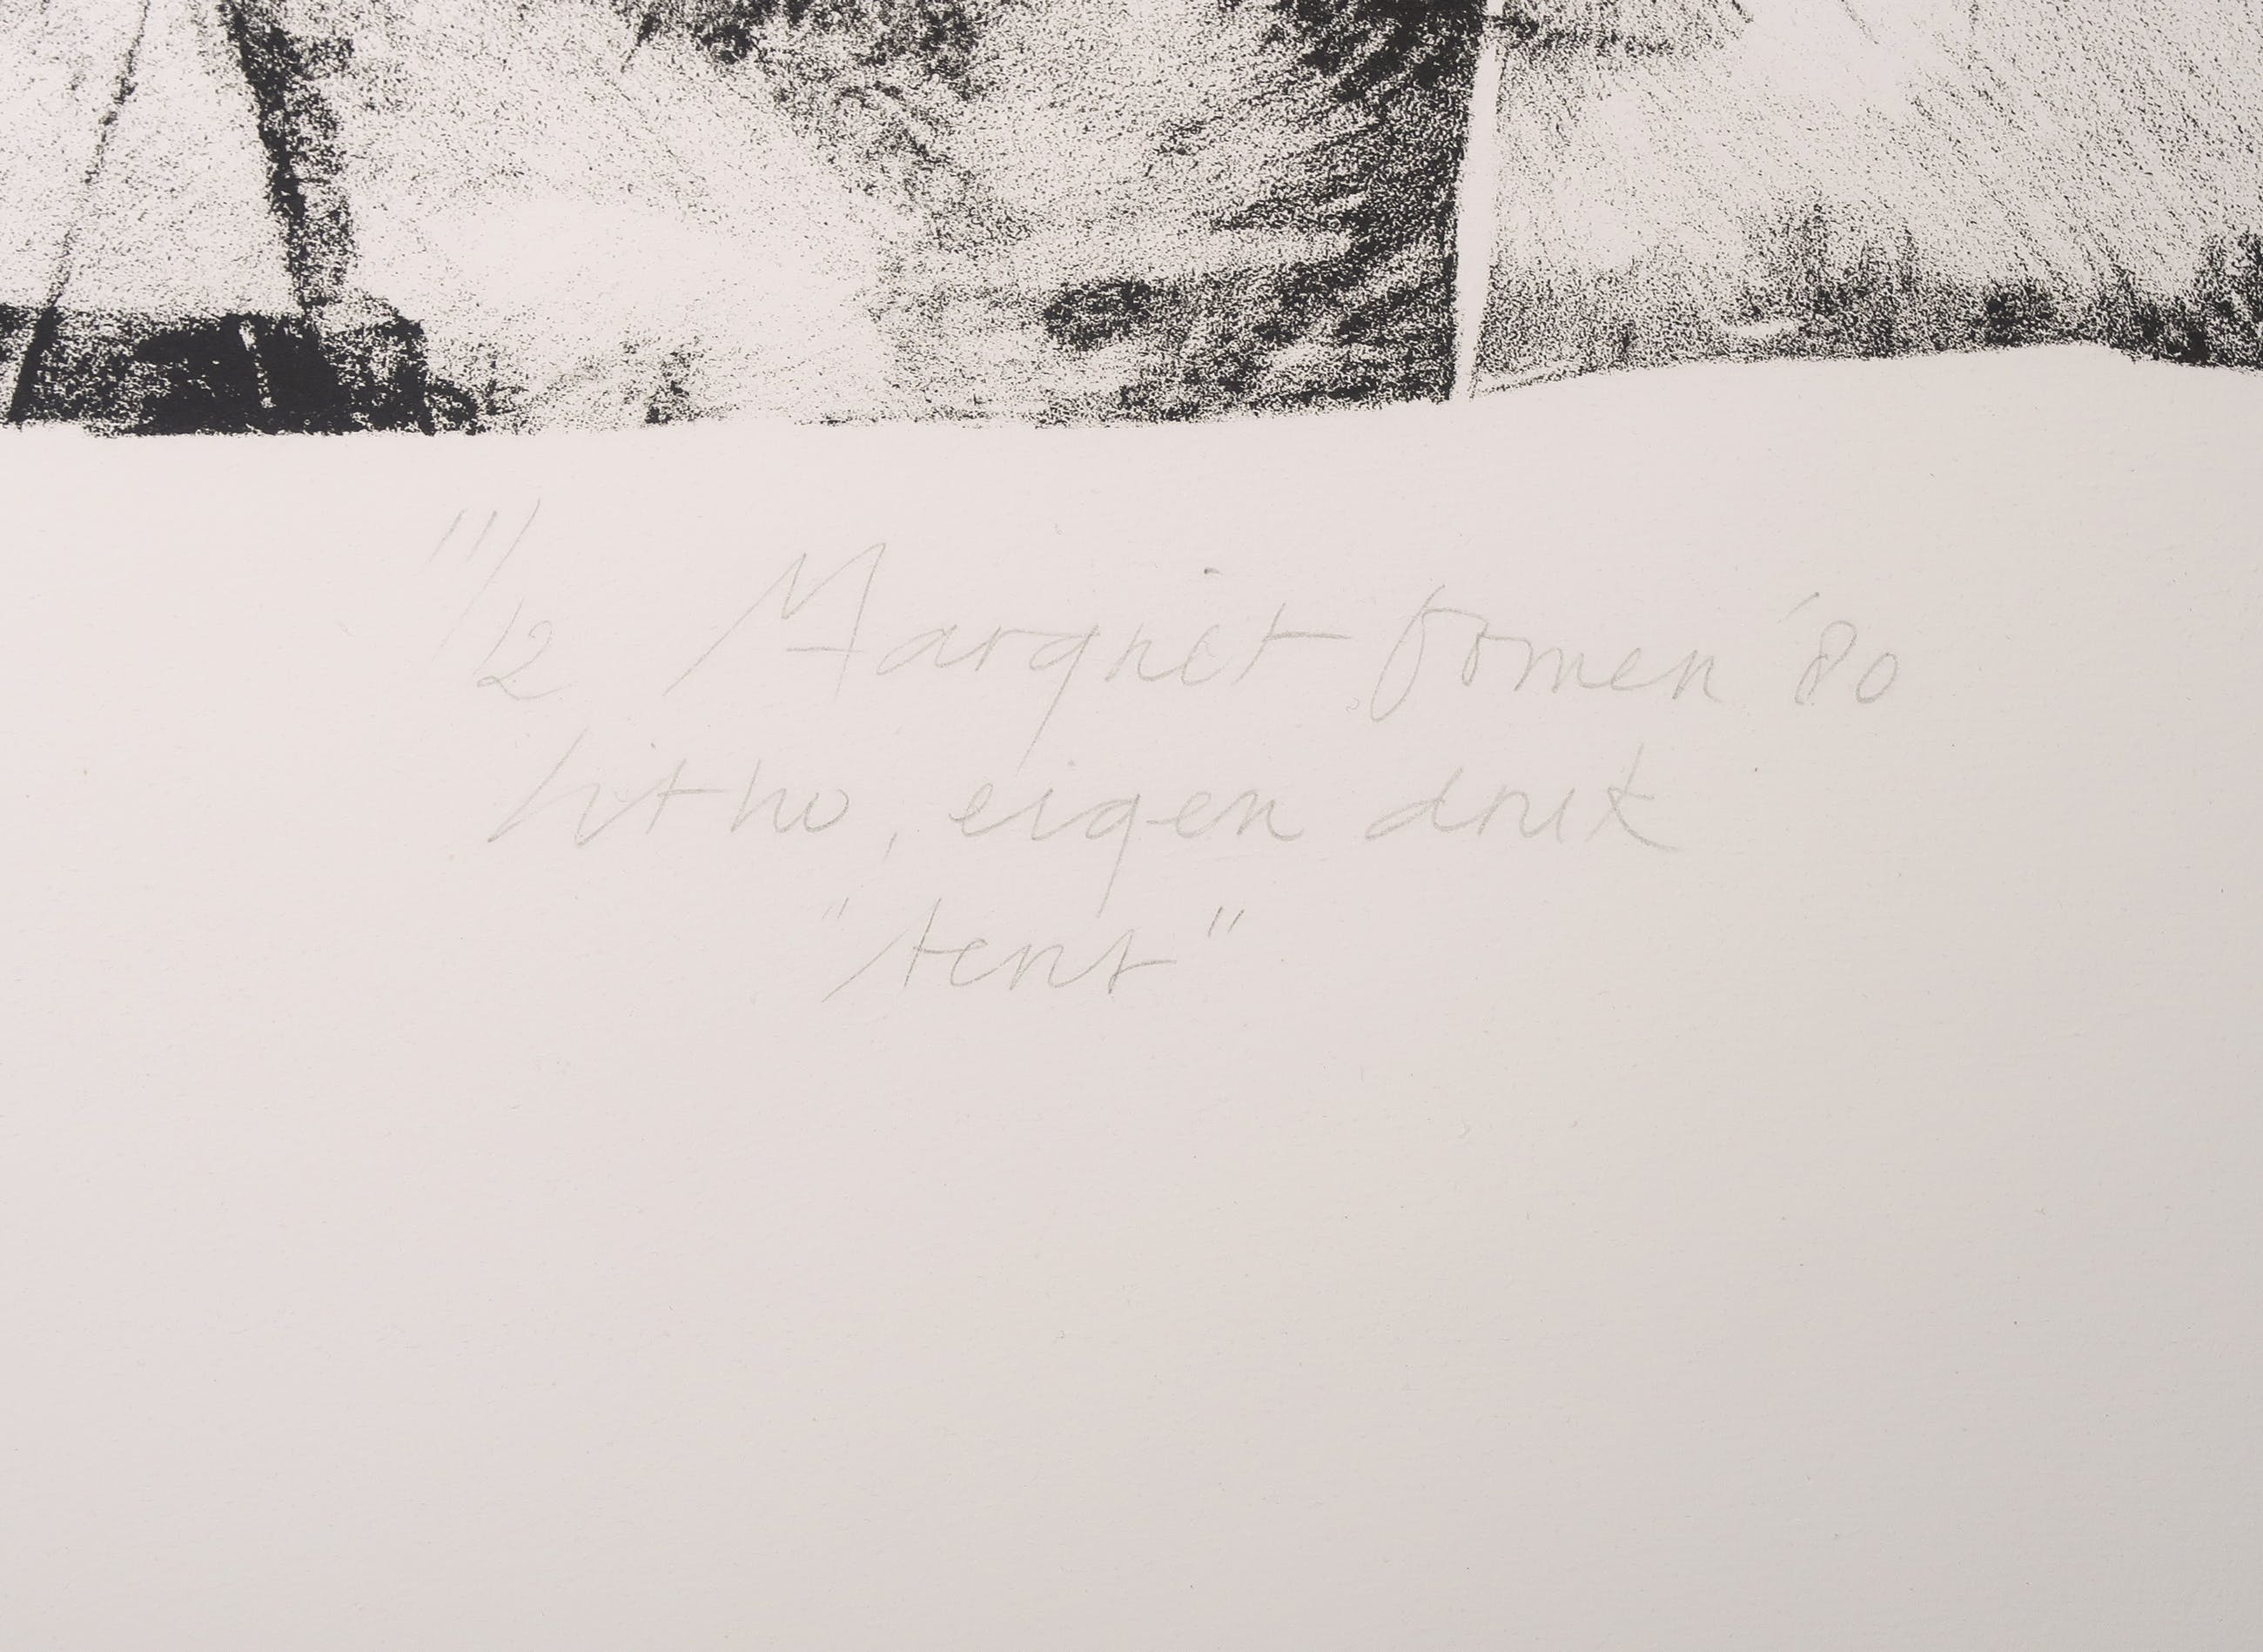 11/12 Margriet Vomen '80
litho, eigen druk
"tent"